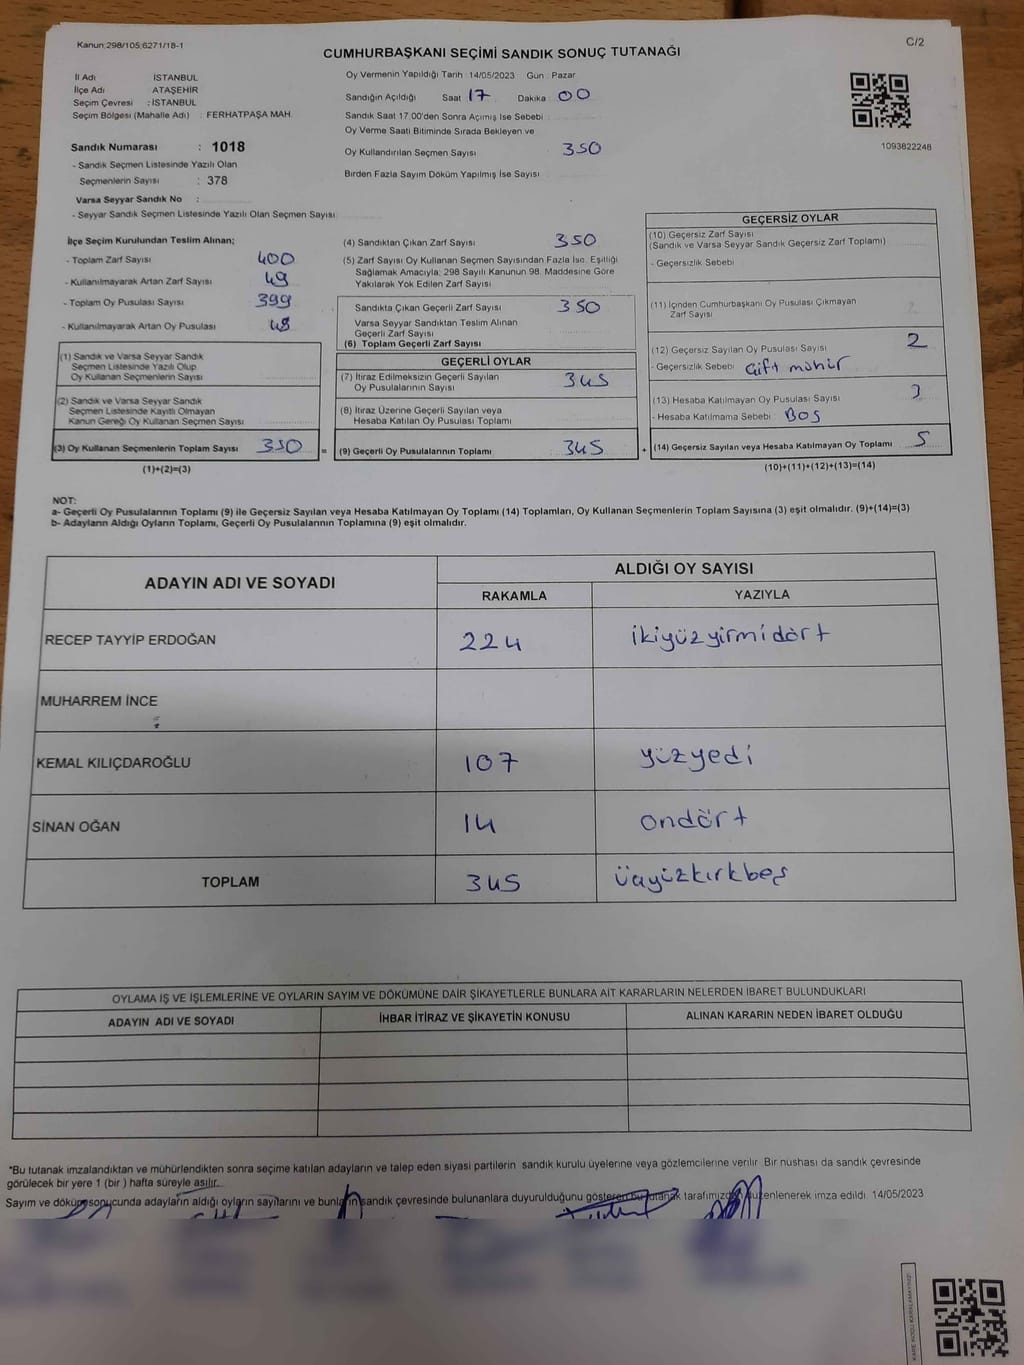 Kanun:298/105;6271/18-1
C/2
CUMHURBAŞKANI SEÇİMİ SANDIK SONUÇ TUTANAĞI
İl Adı İSTANBUL
İlçe Adı ATAŞEHİR
Seçim Çevresi : İSTANBUL
Seçim Bölgesi (Mahalle Adı) : FERHATPAŞA MAH.
Sandık Numarası : 1018
- Sandık Seçmen Listesinde Yazılı Olan
Seçmenlerin Sayısı : 378
Varsa Seyyar Sandık No :
- Seyyar Sandık Seçmen Listesinde Yazılı Olan Seçmen Sayısı
Oy Vermenin Yapıldığı Tarih : 14/05/2023 Gün : Pazar
Sandığın Açıldığı Saat 17 Dakika 00
Sandık Saat 17.00'den Sonra Açımış İse Sebebi
Oy Verme Saati Bitiminde Sırada Bekleyen ve
Oy Kullandırılan Seçmen Sayısı 350
Birden Fazla Sayım Döküm Yapılmış İse Sayısı
1093822248
İlçe Seçim Kurulundan Teslim Alınan;
- Toplam Zarf Sayısı 400
- Kullanılmayarak Artan Zarf Sayısı 49
- Toplam Oy Pusulası Sayısı 399
- Kullanılmayarak Artan Oy Pusulası 48
(1) Sandık ve Varsa Seyyar Sandık
Seçmen Listesinde Yazılı Olup
Oy Kullanan Seçmenlerin Sayısı
(2) Sandık ve Varsa Seyyar Sandık
Seçmen Listesinde Kayıtlı Olmayan
Kanun Gereği Oy Kullanan Seçmen Sayısı
(3) Oy Kullanan Seçmenlerin Toplam Sayısı 350 =
(1)+(2)=(3)
(4) Sandıktan Çıkan Zarf Sayısı 350
(5) Zarf Sayısı Oy Kullanan Seçmen Sayısından Fazla İse, Eşitliği
Sağlamak Amacıyla; 298 Sayılı Kanunun 98. Maddesine Göre
Yakılarak Yok Edilen Zarf Sayısı
Sandıkta Çıkan Geçerli Zarf Sayısı 350
Varsa Seyyar Sandıktan Teslim Alınan
Geçerli Zarf Sayısı
(6) Toplam Geçerli Zarf Sayısı
GEÇERLİ OYLAR
(7) İtiraz Edilmeksizin Geçerli Sayılan 345
Oy Pusulalarının Sayısı
(8) İtiraz Üzerine Geçerli Sayılan veya
Hesaba Katılan Oy Pusulası Toplamı
(9) Geçerli Oy Pusulalarının Toplamı 345 +
GEÇERSİZ OYLAR
(10) Geçersiz Zarf Sayısı
(Sandık ve Varsa Seyyar Sandık Geçersiz Zarf Toplamı)
- Geçersizlik Sebebi
(11) İçinden Cumhurbaşkanı Oy Pusulası Çıkmayan
Zarf Sayısı
(12) Geçersiz Sayılan Oy Pusulası Sayısı 2
- Geçersizlik Sebebi Çift mühür
(13) Hesaba Katılmayan Oy Pusulası Sayısı 3
- Hesaba Katılmama Sebebi : BOŞ
(14) Geçersiz Sayılan veya Hesaba Katılmayan Oy Toplamı 5
(10)+(11)+(12)+(13)=(14)
NOT:
a- Geçerli Oy Pusulalarının Toplamı (9) ile Geçersiz Sayılan veya Hesaba Katılmayan Oy Toplamı (14) Toplamları, Oy Kullanan Seçmenlerin Toplam Sayısına (3) eşit olmalıdır. (9)+(14)=(3)
b- Adayların Aldığı Oyların Toplamı, Geçerli Oy Pusulalarının Toplamına (9) eşit olmalıdır.
ADAYIN ADI VE SOYADI
ALDIĞI OY SAYISI
RAKAMLA YAZIYLA
RECEP TAYYİP ERDOĞAN 224 ikiyüzyirmidört
MUHARREM İNCE
KEMAL KILIÇDAROĞLU 107 yüzyedi
SİNAN OĞAN 14 ondört
TOPLAM 345 üçyüzkırkbeş
OYLAMA İŞ VE İŞLEMLERİNE VE OYLARIN SAYIM VE DÖKÜMÜNE DAİR ŞİKAYETLERLE BUNLARA AİT KARARLARIN NELERDEN İBARET BULUNDUKLARI
ADAYIN ADI VE SOYADI İHBAR İTİRAZ VE ŞİKAYETİN KONUSU ALINAN KARARIN NEDEN İBARET OLDUĞU
*Bu tutanak imzalandıktan ve mühürlendikten sonra seçime katılan adayların ve talep eden siyasi partilerin sandık kurulu üyelerine veya gözlemcilerine verilir. Bir nushası da sandık çevresinde
görülecek bir yere 1 (bir ) hafta süreyle asılır.
Sayım ve döküm sonucunda adayların aldığı oyların sayılarını ve bunların sandık çevresinde bulunanlara duyurulduğunu gösteren bu tutanak tarafımızdan düzenlenerek imza edildi 14/05/2023